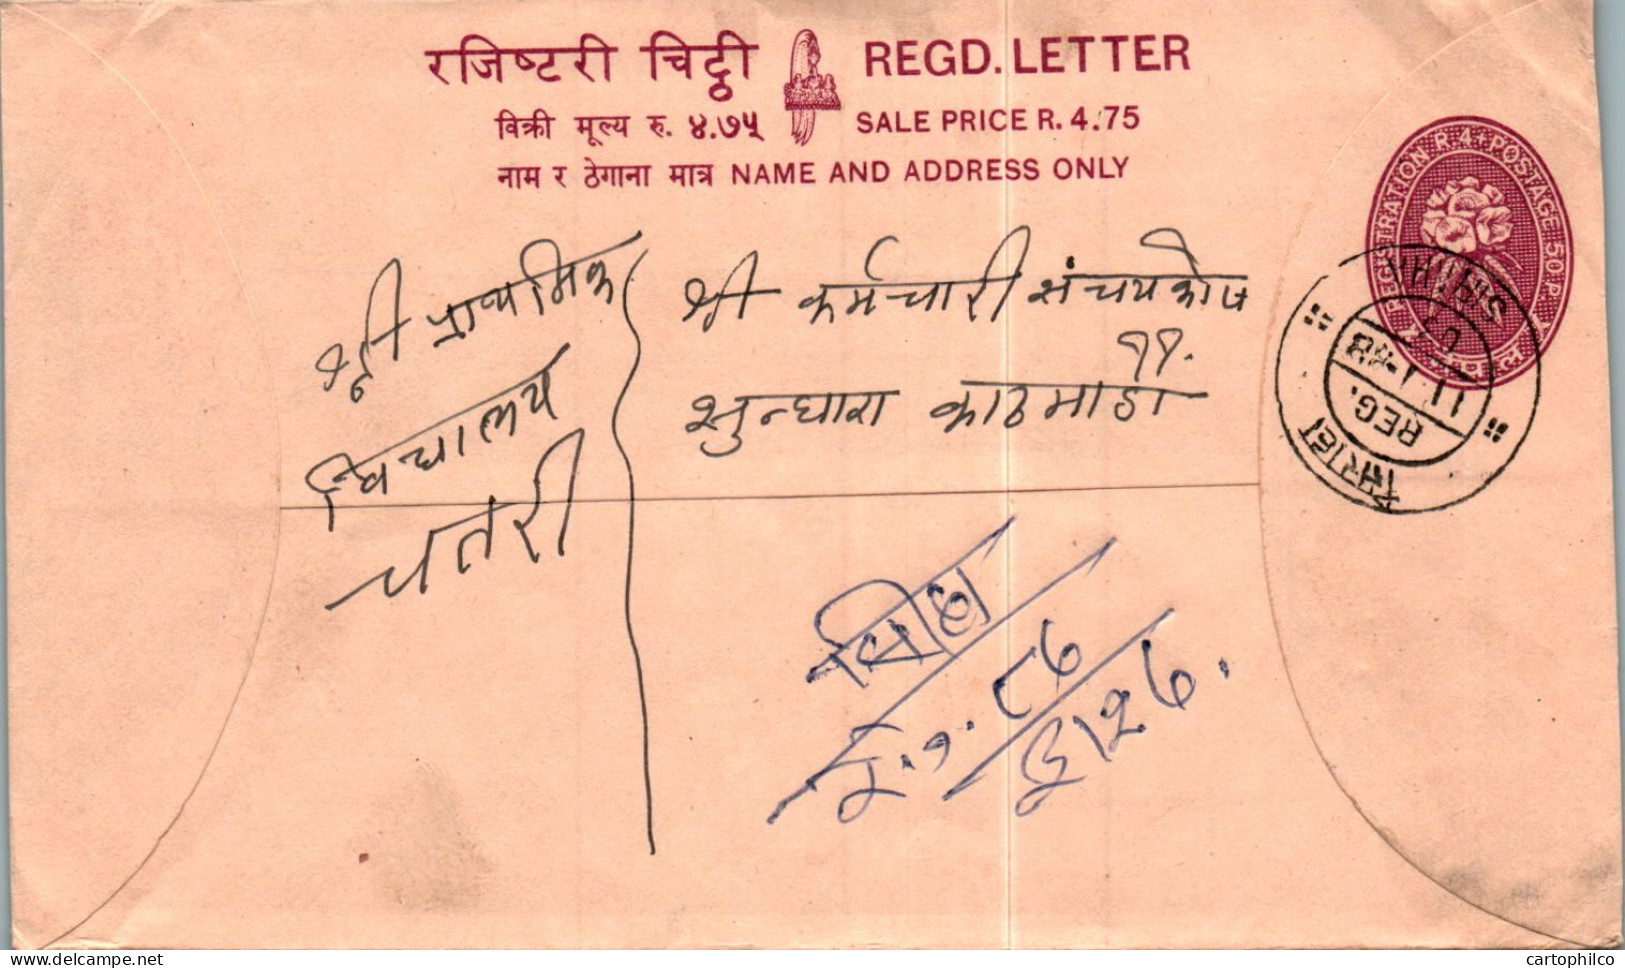 रजिष्टरी चिट्ठी REGD. LETTER
विक्री मूल्य रु. ४.७५ SALE PRICE R. 4.75
नाम र ठेगाना मात्र NAME AND ADDRESS ONLY
REGISTRATION R. 4 + POSTAGE 50 P.
श्री प्राथमिक
विद्यालय
श्री कर्मचारी संचयकोष
११.
सुन्धारा काठमाडौ
SIRAHA
11-1-88
REG.
सिराहा
delcampe.net
cartophilco